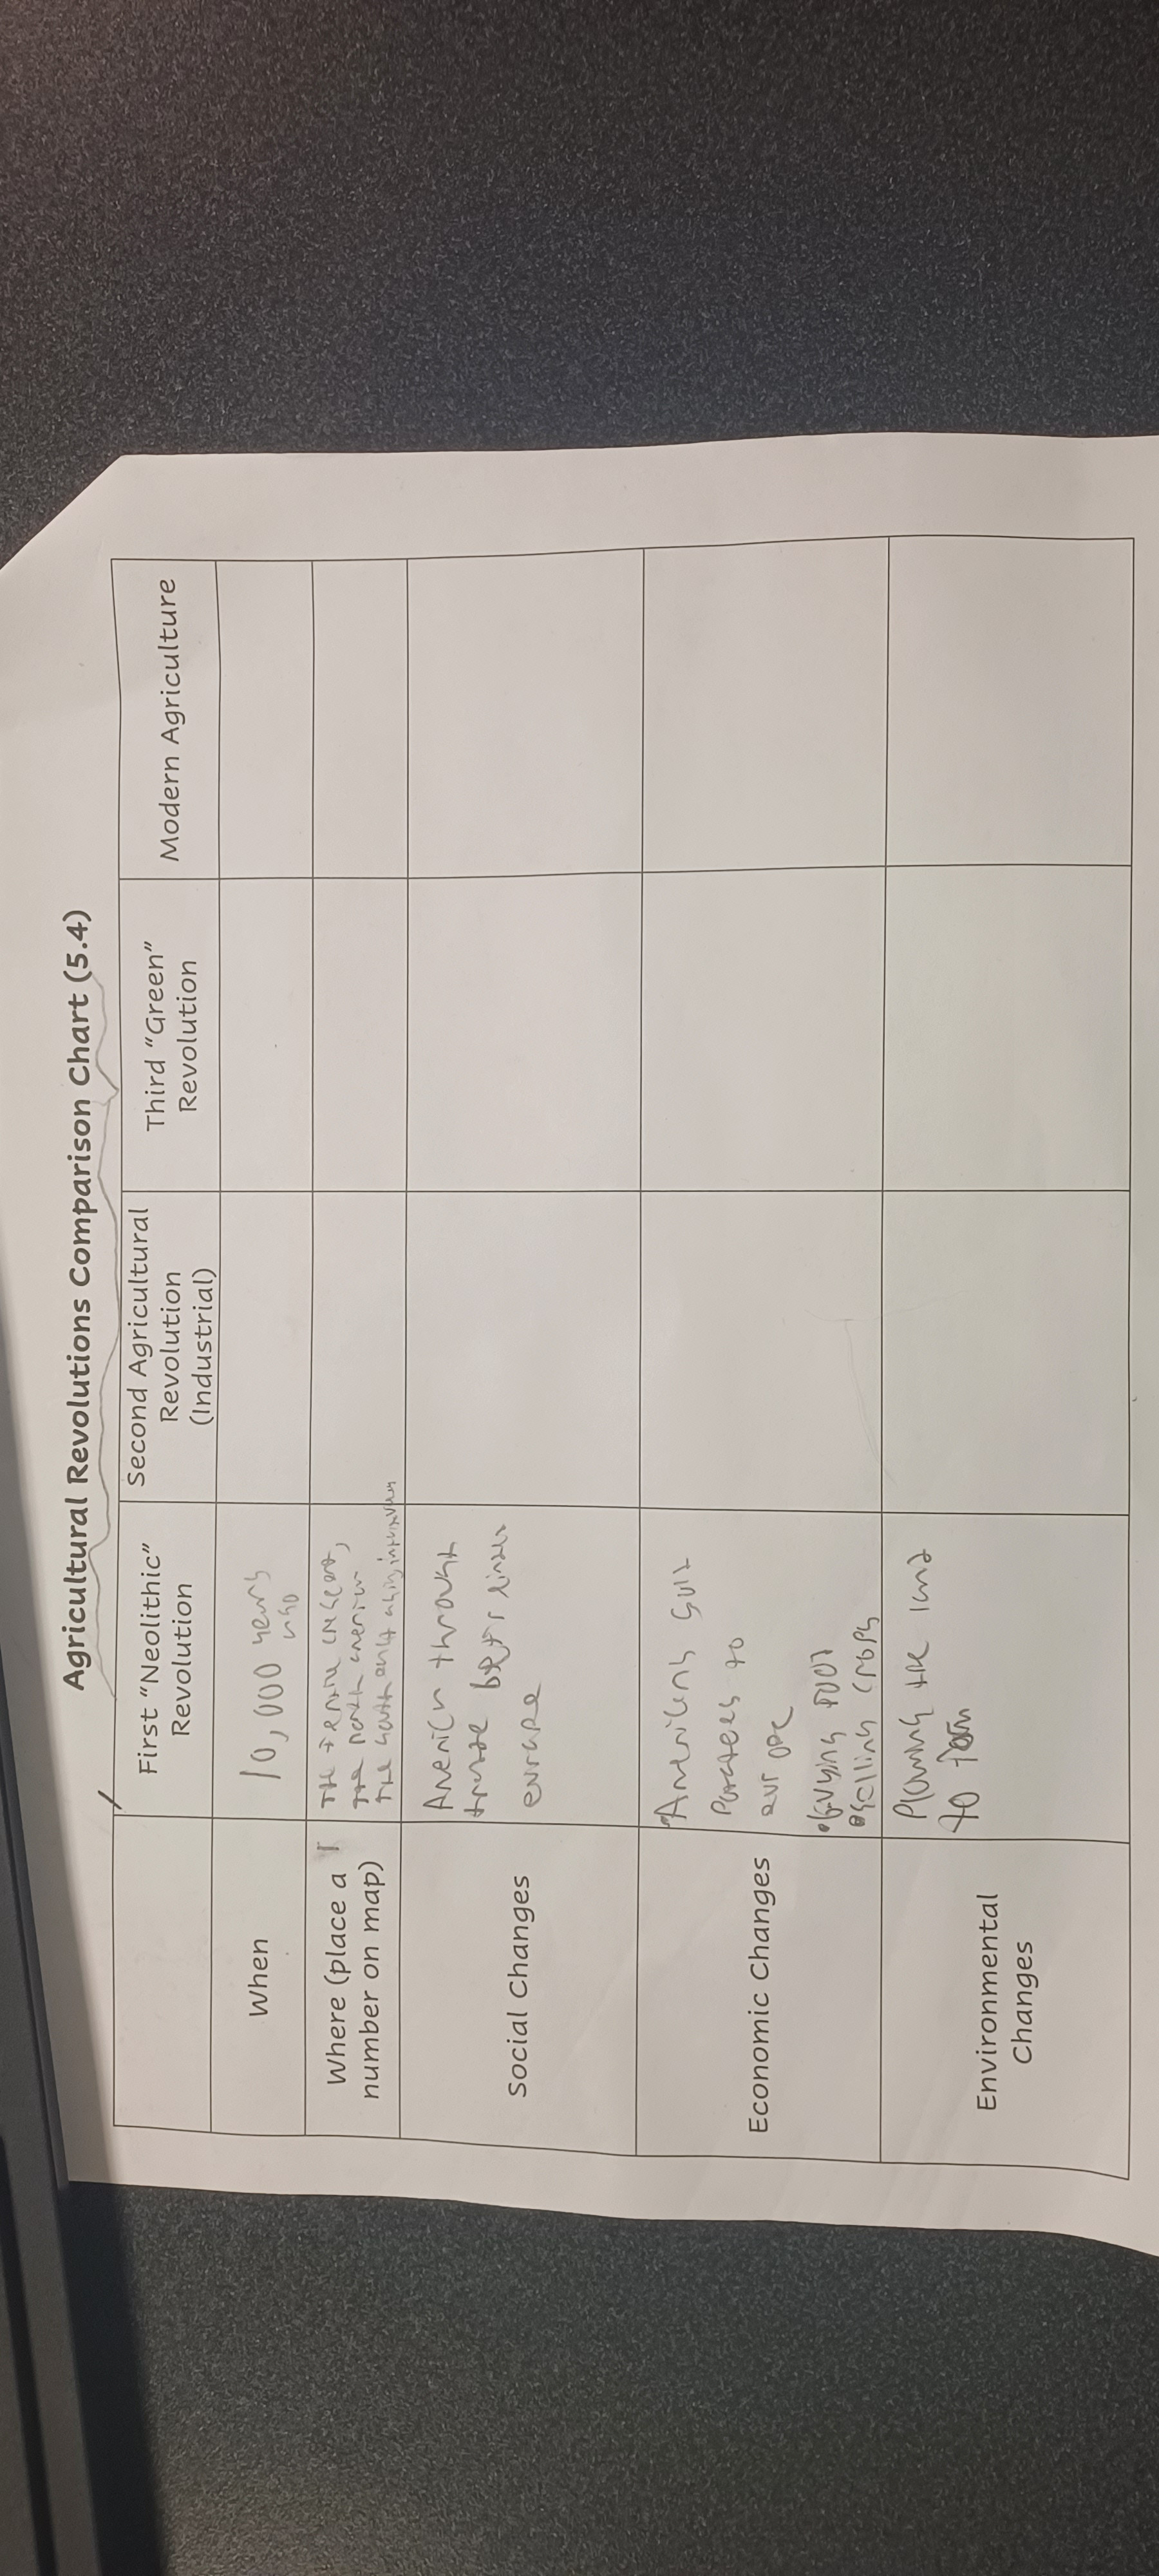 Agricultural Revolutions Comparison Chart (5.4)
First “Neolithic”
Revolution
Second Agricultural
Revolution
(Industrial)
Third “Green”
Revolution
Modern Agriculture
When
10,000 years
ago
Where (place a
number on map)
The
the north
the south
Social Changes
through
trade
europe
Economic Changes
to
europe
•Buying food
•Selling crops
Environmental
Changes
Plowing the land
to farm